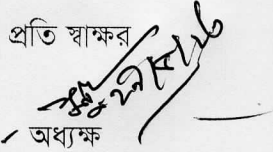 প্রতি স্বাক্ষর
অধ্যক্ষ